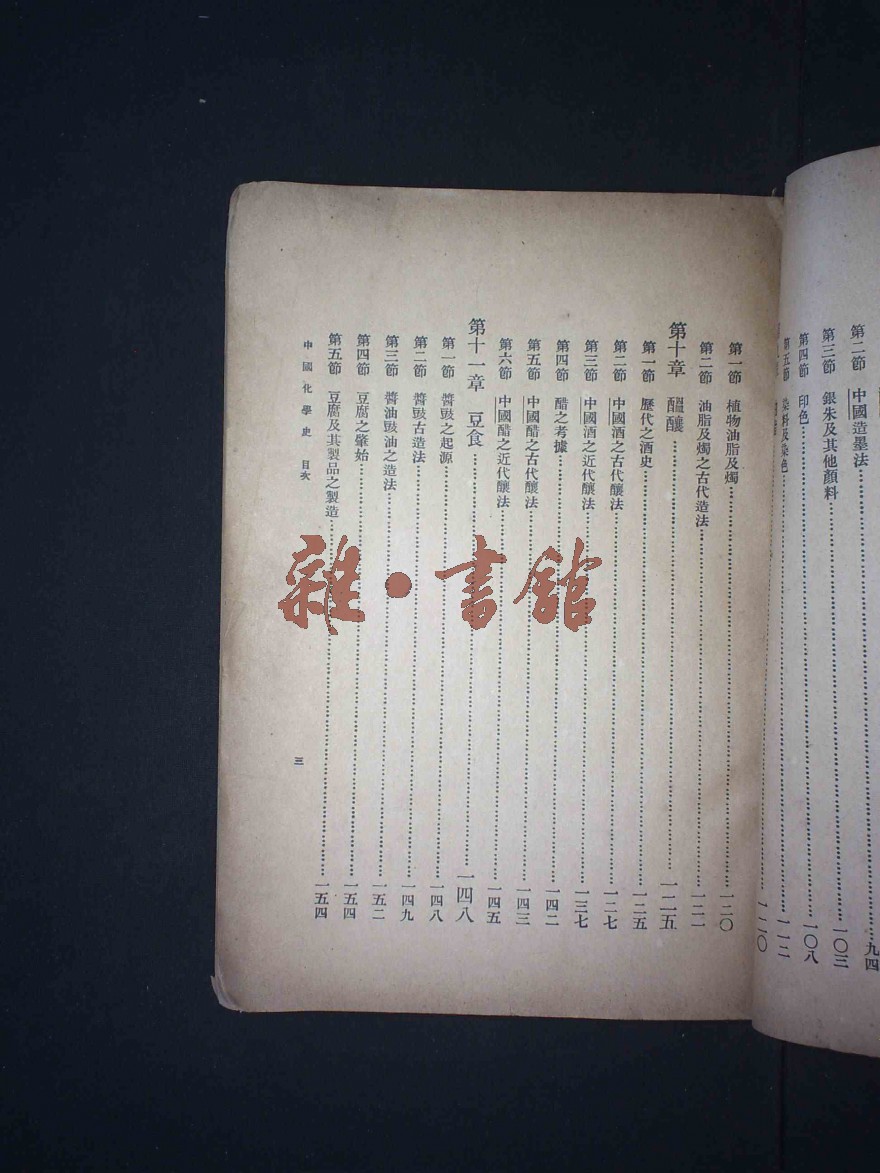 第二節 中國造墨法……九四
第三節 銀朱及其他顏料……一〇三
第四節 印色……一〇八
第五節 染料及染色……一一二
一二〇
第一節 植物油脂及燭……一二〇
第二節 油脂及燭之古代造法……一二一
第十章 醞釀……一二五
第一節 歷代之酒史……一二五
第二節 中國酒之古代釀法……一二七
第三節 中國酒之近代釀法……一三七
第四節 醋之考據……一四二
第五節 中國醋之古代釀法……一四三
第六節 中國醋之近代釀法……一四五
第十一章 豆食……一四八
第一節 醬豉之起源……一四八
第二節 醬豉古造法……一四九
第三節 醬油豉油之造法……一五二
第四節 豆腐之肇始……一五四
第五節 豆腐及其製品之製造……一五四
中國化學史 目次 三
雜·書館